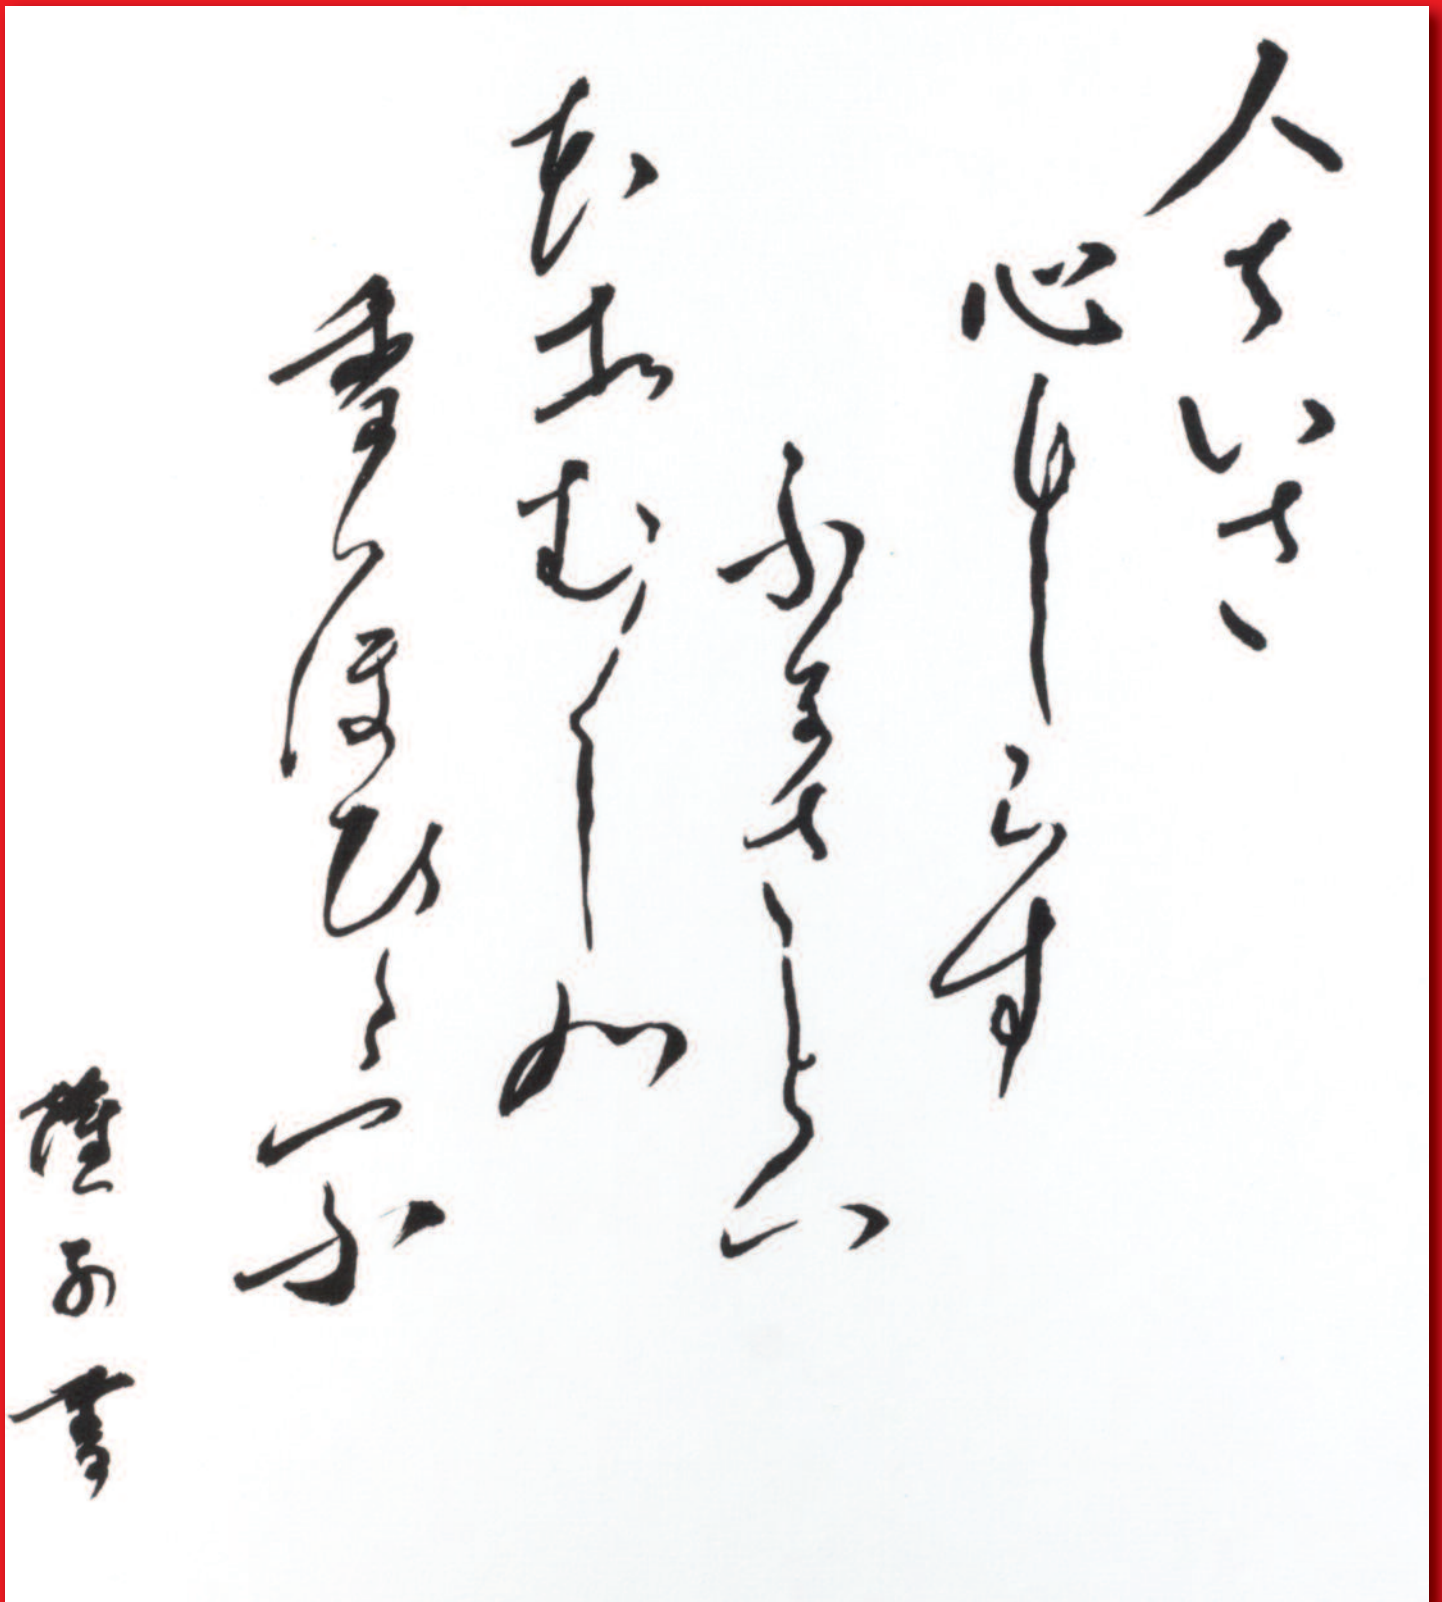 人はいさ
心もしらす
ふるさとハ
花そむかしの
香ににほひける
書